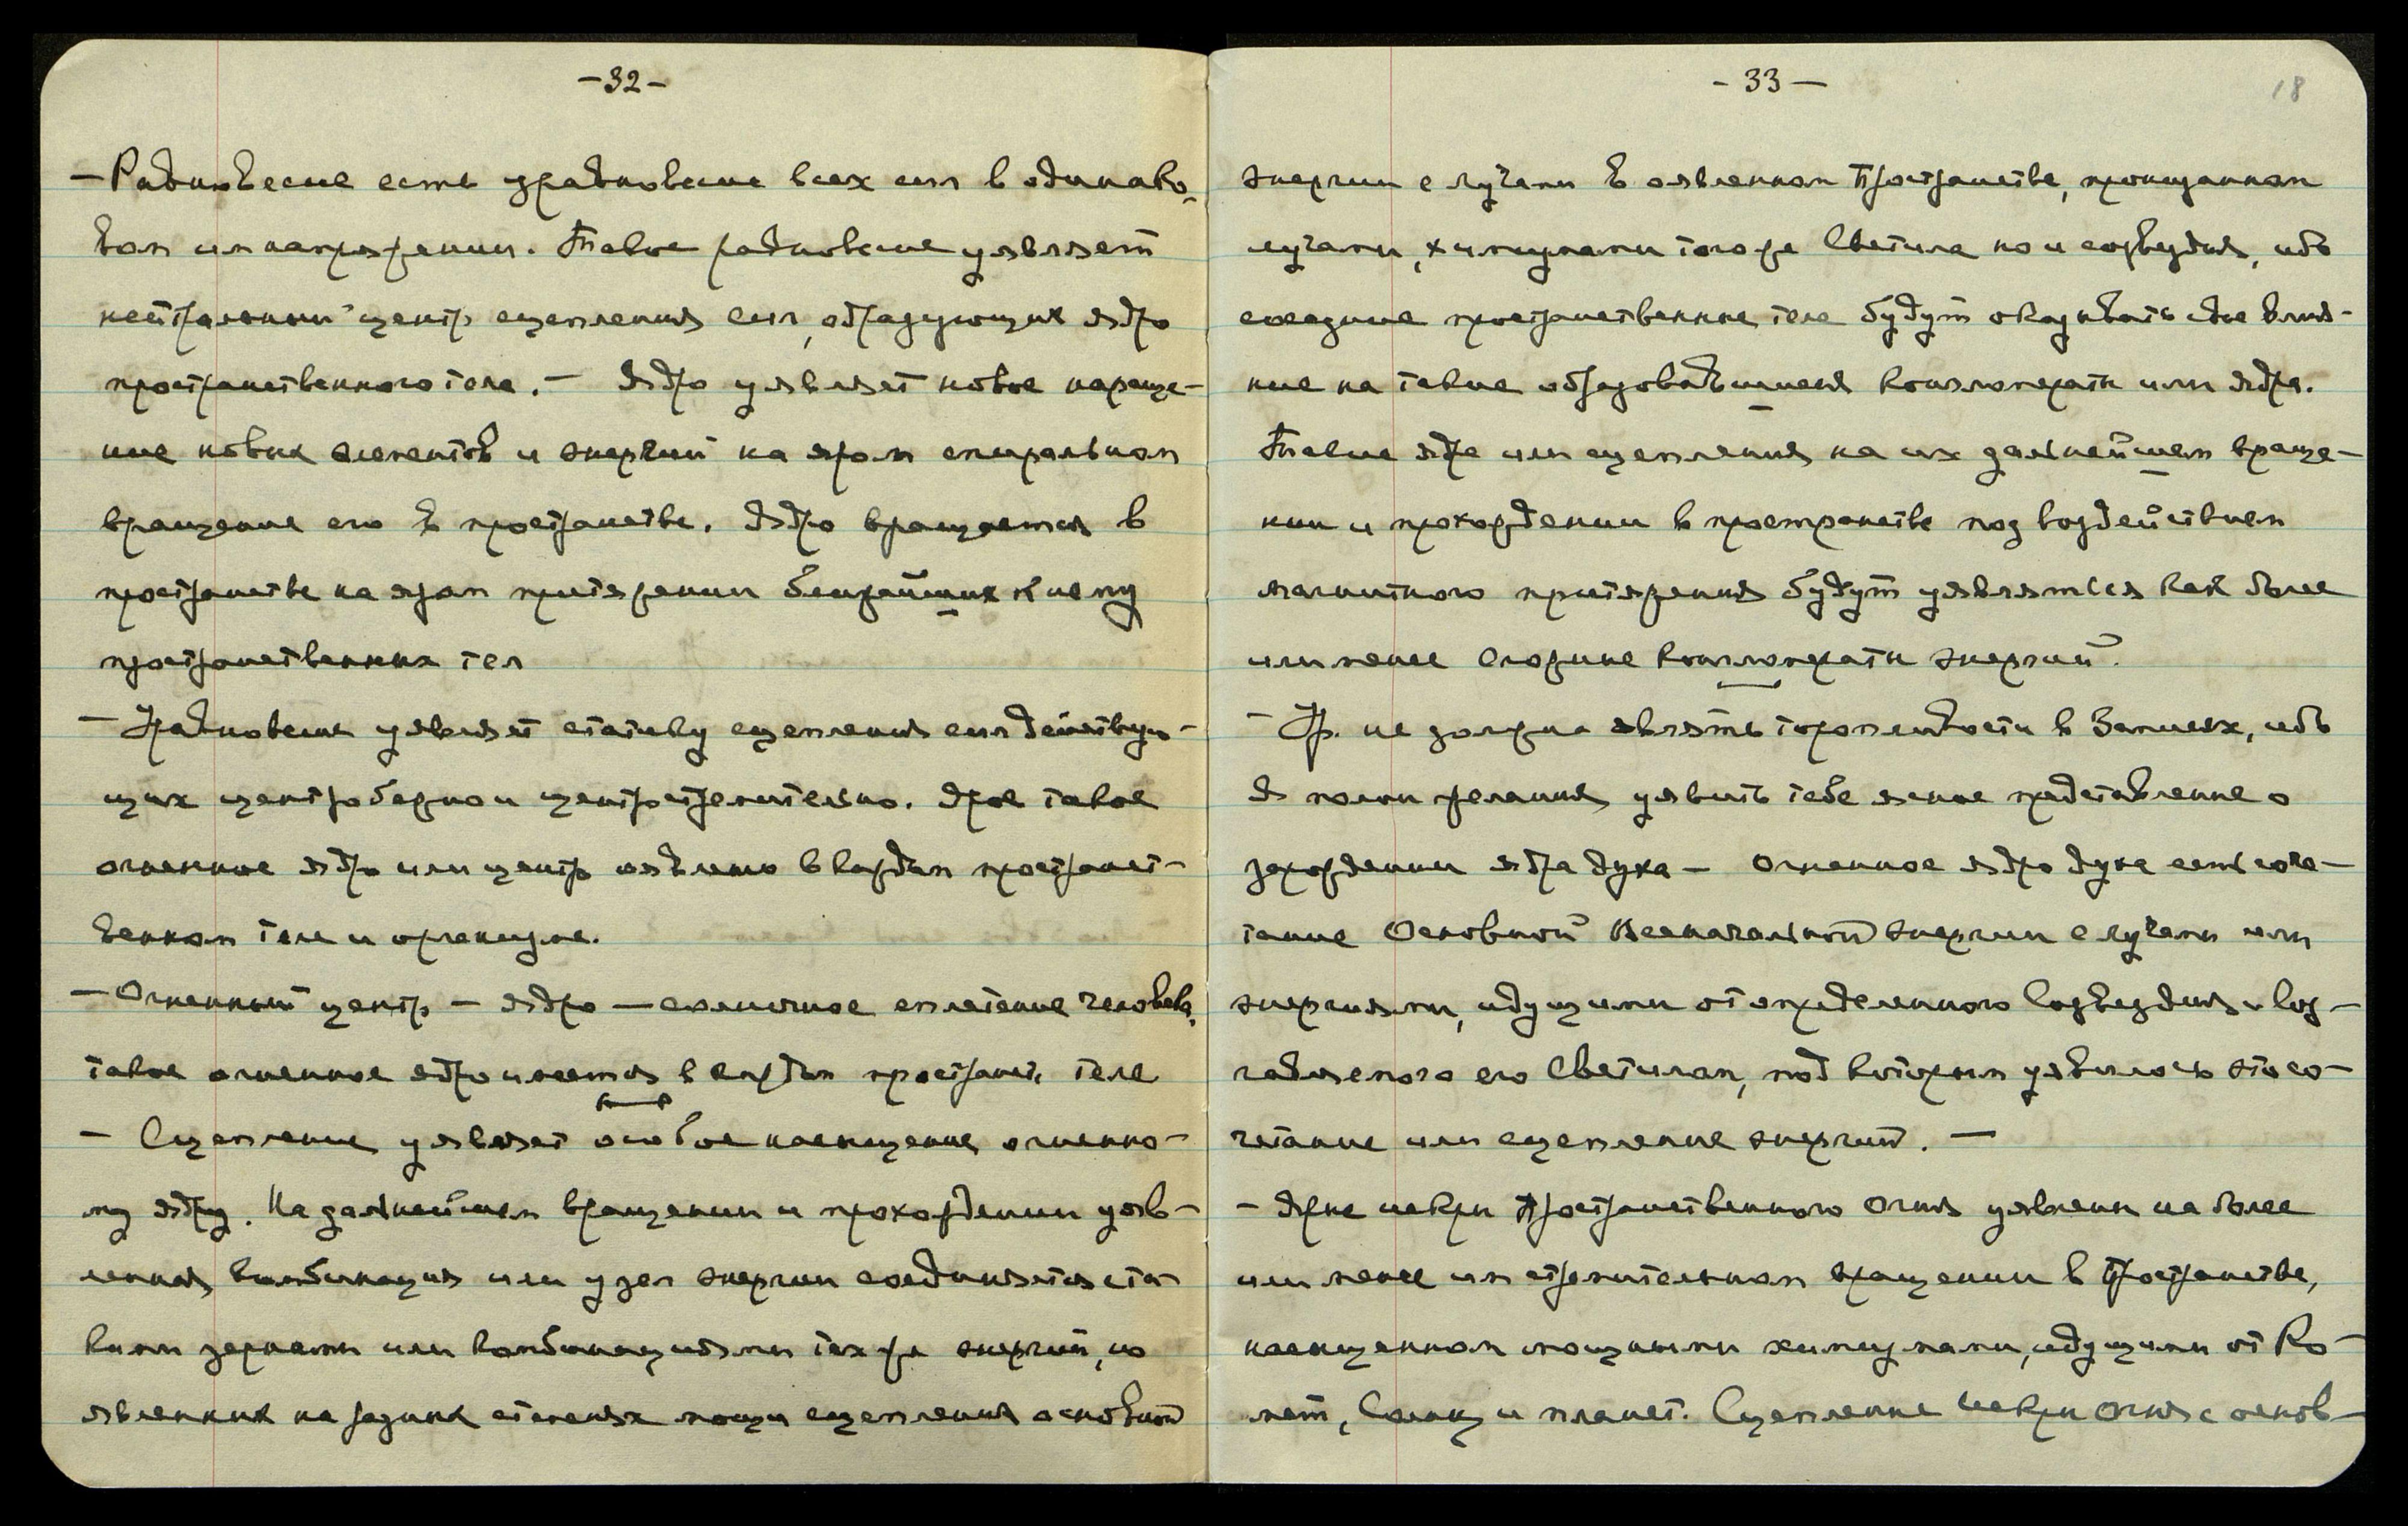 -32-
— Равновесие есть уравновесие всех сил в одинако-
вом им напряжении. Такое равновесие уявляет
нейтральный центр сцепления сил, образующих ядро
пространственного тела. — Ядро уявляет новое нараще-
ние новых элементов и энергий на яром спиральном
вращение его в пространстве. Ядро вращается в
пространстве на яром притяжении ближайших к нему
пространственных тел
— Уравновесие уявляет статику сцепления сил действую-
щих центробежно и центростремительно. Ярое такое
огненное ядро или центр оявлено в каждом пространст-
венном теле и организме.
— Огненный центр — ядро — солнечное сплетение человека,
такое огненное ядро имеется в каждом пространств. теле
— Сцепление уявляет особое насыщение огненно-
му ядру. На дальнейшем вращении и прохождении уяв-
ленная комбинация или узел энергии соединяется с та-
кими зернами или комбинациями тех же энергий, но
явленных на разных степенях мощи сцепления основной
- 33 —
18
энергии с лучами в оявленном Пространстве, пронизанном
лучами, химизмами того же Светила но и созвездия, ибо
соседние пространственные тела будут оказывать свое влия-
ние на такие образовавшиеся конгломераты или ядра.
Такие ядра или сцепления на их дальнейшем враще-
нии и прохождении в пространстве под воздействием
магнитного притяжения будут уявляться как более
или менее сложные конгломераты энергий.
— Ур. не должна являть торопливости в Записях, ибо
Я полон желания уявить тебе ясное представление о
зарождении ядра духа — Огненное ядро духа есть соче-
тание Основной Всеначальной энергии с лучами или
энергиями, идущими от определенного Созвездия и воз-
главляемого его Светилом, под которым уявилось это со-
четание или сцепление энергий. —
— Ярые искры Пространственного Огня уявлены на более
или менее им стремительном вращении в Пространстве,
насыщенном мощными химизмами, идущими от Ко-
мет, Солнц и планет. Сцепление Искры Огня с основ-